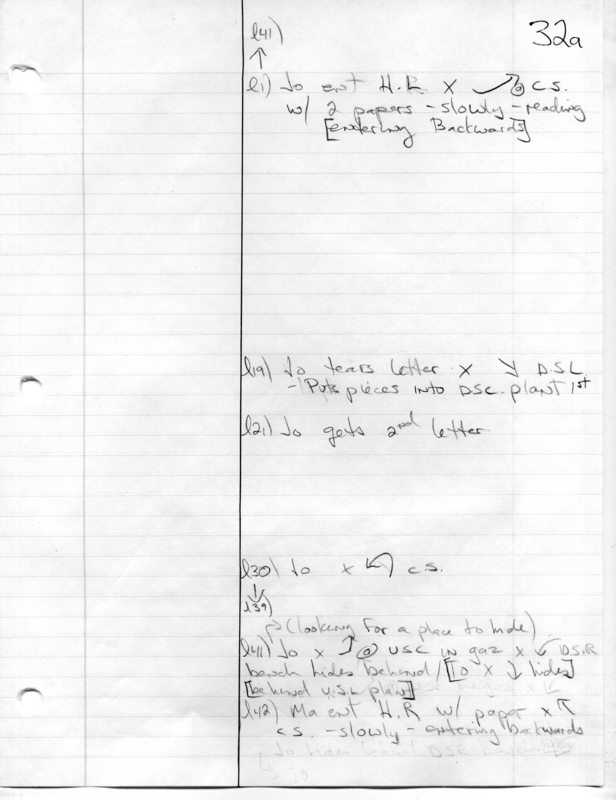 32a
l41)
↑
l1) Jo ent H.R X ↗ @ C.S.
w/ 2 papers - slowly - reading
[entering Backwards]
l19) Jo tears letter X ↘ D.S.L
- Puts pieces into DSC. plant 1st
l21) Jo gets 2nd letter
l30) Jo x ↶ C.S.
↓
l39)
↱ (looking for a place to hide)
l41) Jo x ⤴ @ USC in gaz x ↙ D.S.R
bench hides behind / [Jo X ↓ hides]
[behind U.S.L plant]
l42) Ma ent H.R w/ paper x ↖
C.S. - slowly - entering backwards
Jo hides behind DSR
↳ Jo